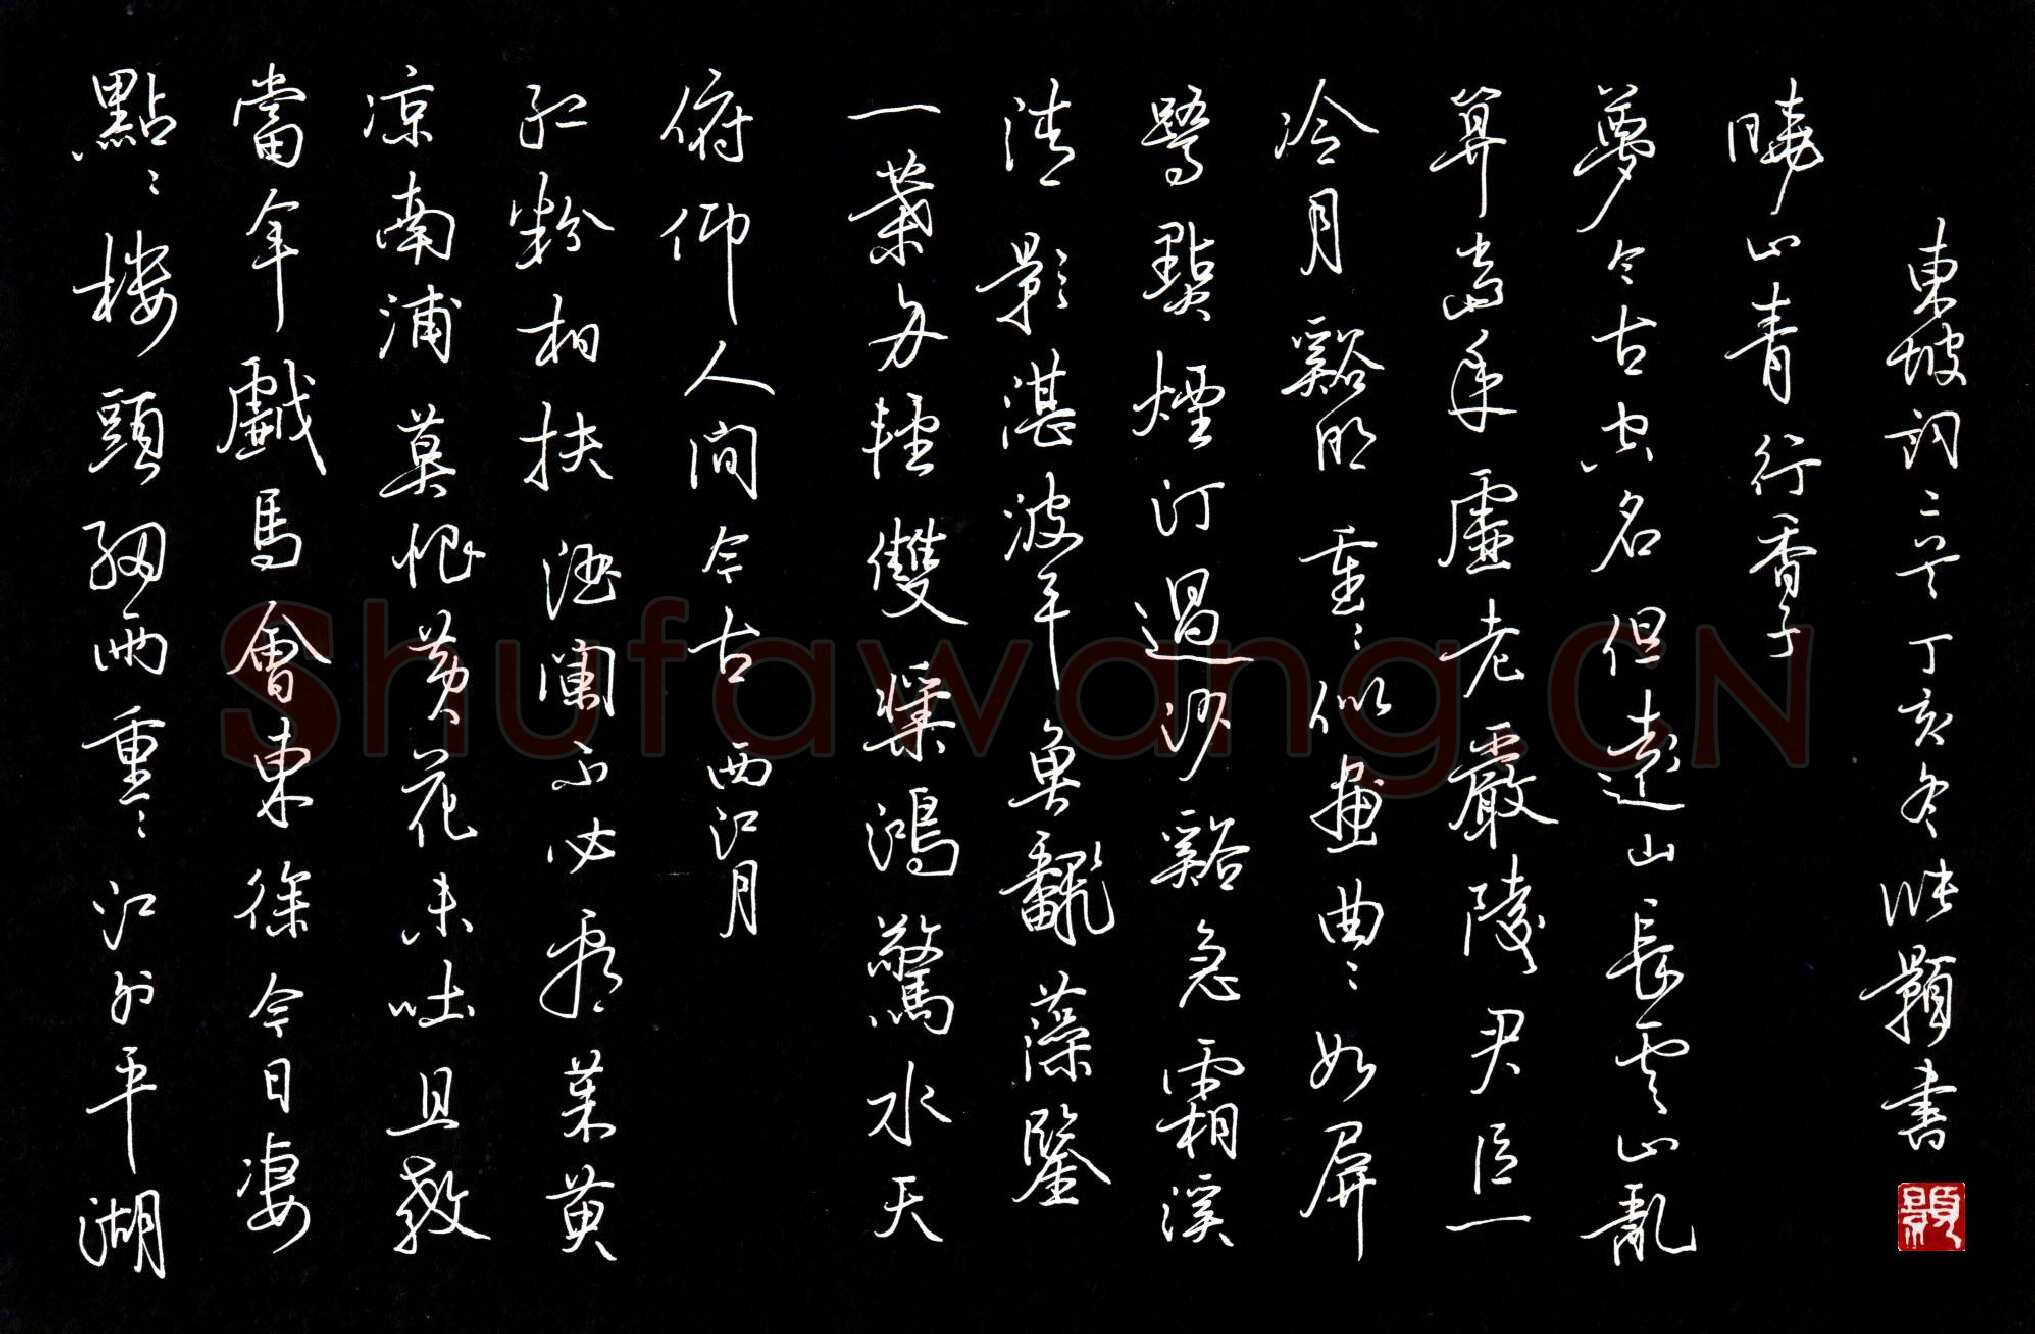 點〻樓頭細雨重〻江外平湖
當年戲馬會東徐今日淒
涼南浦莫恨黃花未吐且教
紅粉相扶酒闌不必看茱萸
俯仰人間今古 西江月
一葉舟輕雙槳鴻驚水天
清影湛波平魚翻藻鑒
鷺點煙汀過沙谿急霜溪
冷月谿明重〻似畫曲〻如屏
算當年虛老嚴陵君臣一
夢今古空名但遠山長雲山亂
曉山青 行香子
東坡詞二首丁亥冬張顥書
Shufawang.CN